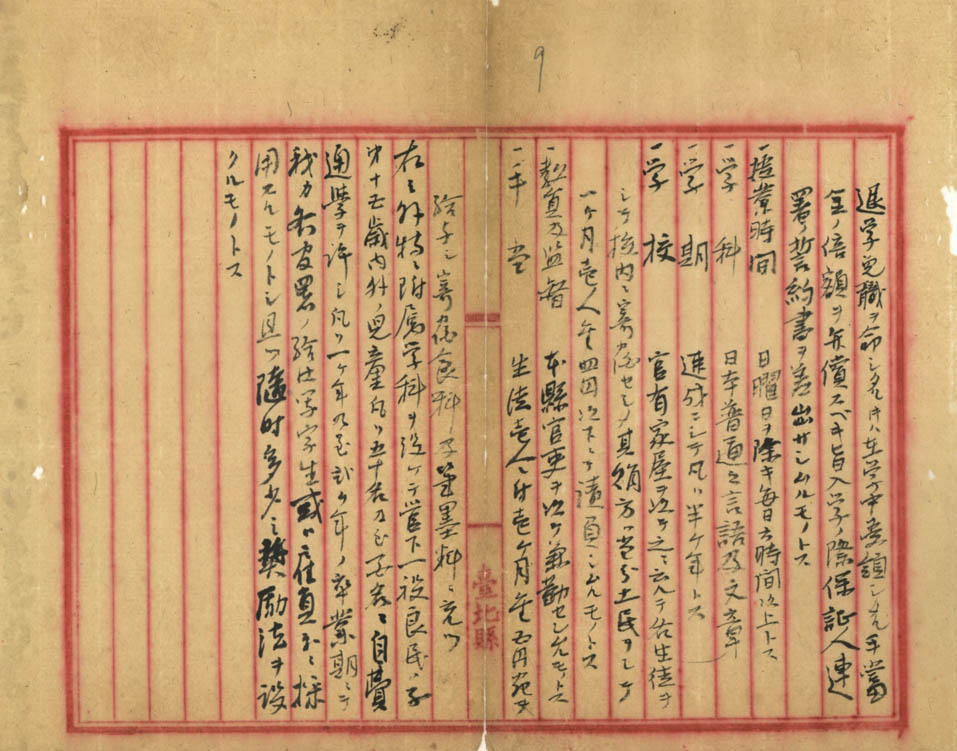 9
退学免職ヲ命シタルトキハ在学中受領シタル手當
金ノ倍額ヲ弁償スベキ旨入学ノ際保証人連
署ノ誓約書ヲ差出サシムルモノトス
一授業時間 日曜日ヲ除キ毎日六時間以上トス
一学科 日本普通之言語及文章
一学期 速成ニシテ凡ソ半ケ年トス
一学校 官有家屋ヲ以テ之ニ充テ各生徒ヲ
シテ校内ニ寄宿セシメ其賄方ハ土民ヲシテ
一ケ月壱人金四円以下ニテ請負ハシムルモノトス
一教員及監督 本縣官吏ヲ以テ兼勤セシムルモノトス
一手當 生徒壱人ニ付壱ケ月金五円宛ヲ
給予シ寄宿食料及筆墨料ニ充ツ
右之外特ニ附属学科ヲ設ケテ管下一般良民ノ子
弟十五歳内外ノ児童凡ソ五十名乃至 名ニ自費
通学ヲ許シ凡ソ一ケ年乃至弐ケ年ノ卒業期ニテ
我カ各官署ノ給仕写字生或ハ雇員等ニ採
用スルモノトシ且ツ随時多少之奨励法ヲ設
クルモノトス
臺北縣